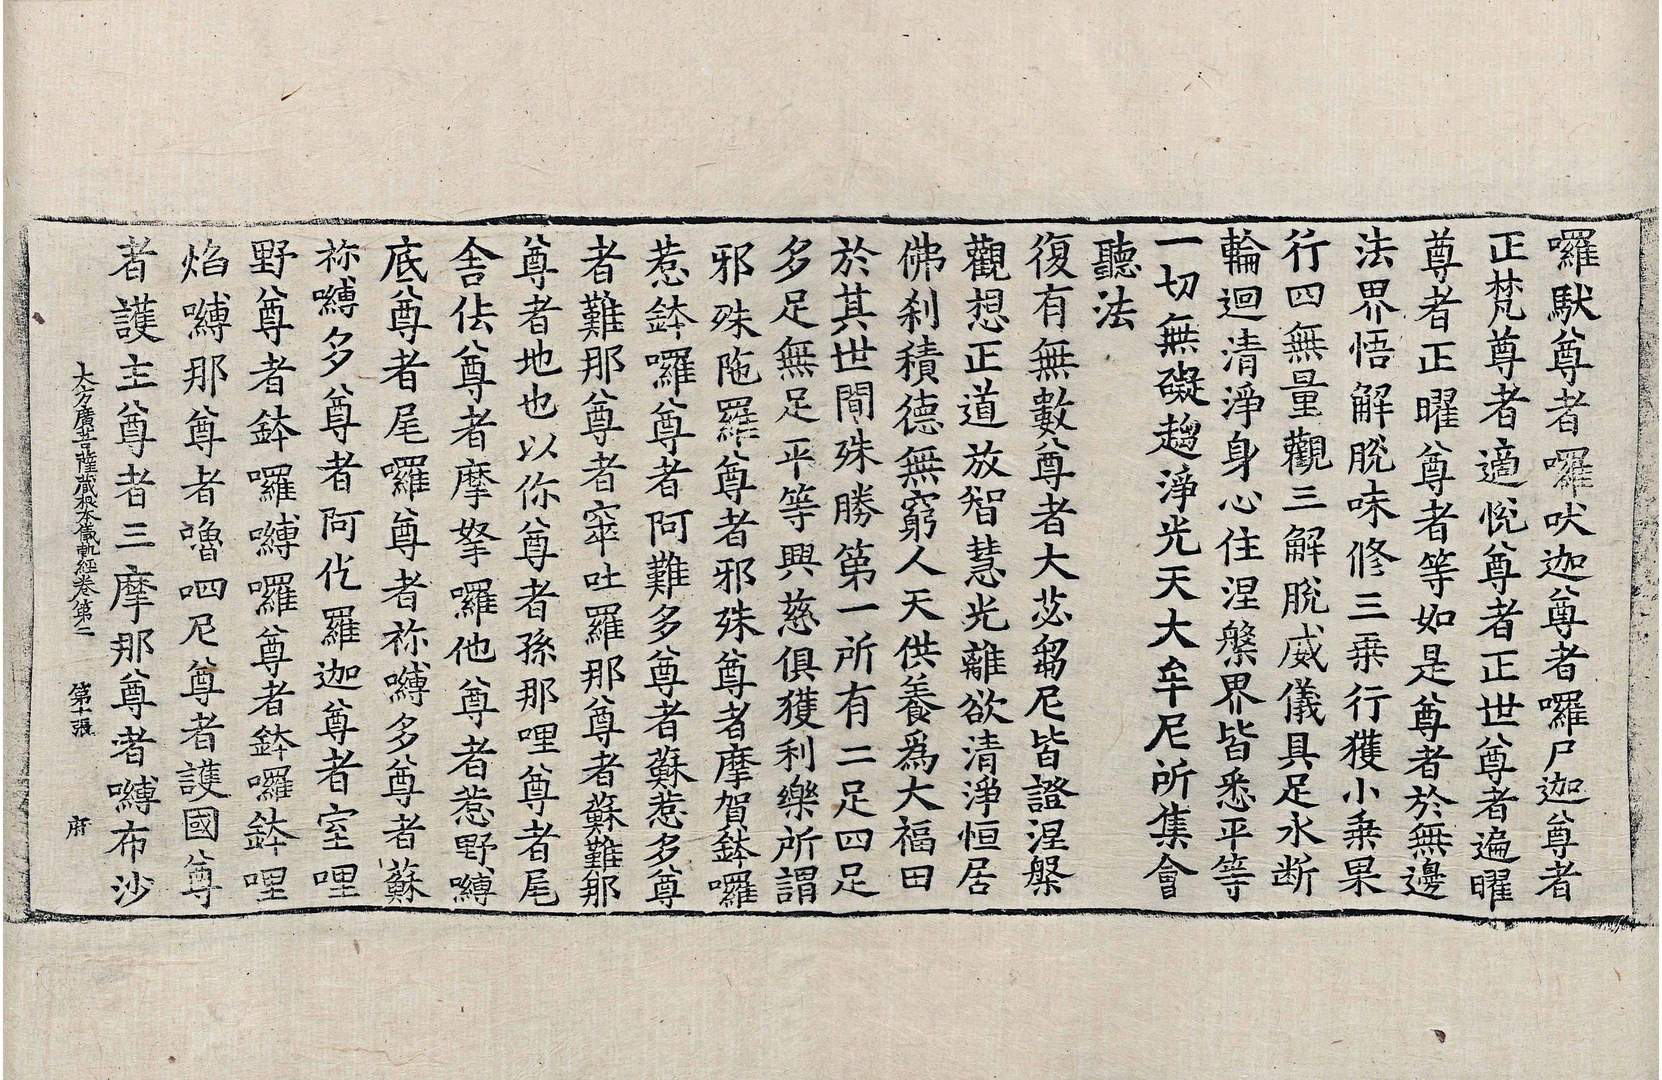 囉馱尊者囉吠迦尊者囉尸迦尊者
正梵尊者適悅尊者正世尊者遍曜
尊者正曜尊者等如是尊者於無邊
法界悟解脫味修三乗行獲小乗果
行四無量觀三解脫威儀具足永断
輪迴清淨身心住涅槃界皆悉平等
一切無礙趨淨光天大牟尼所集會
聽法
復有無數尊者大苾芻尼皆證涅槃
觀想正道放智慧光離欲清淨恒居
佛刹積德無窮人天供養爲大福田
於其世間殊勝第一所有二足四足
多足無足平等興慈俱獲利樂所謂
邪殊陁羅尊者邪殊尊者摩賀鉢囉
惹鉢囉尊者阿難多尊者蘇惹多尊
者難那尊者窣吐羅那尊者蘇難那
尊者地也以你尊者孫那哩尊者尾
舎佉尊者摩拏囉他尊者惹野嚩
底尊者尾囉尊者祢嚩多尊者蘇
祢嚩多尊者阿仡羅迦尊者室哩
野尊者鉢囉嚩囉尊者鉢囉鉢哩
焰嚩那尊者嚕呬尼尊者護國尊
者護主尊者三摩那尊者嚩布沙
大方廣菩薩藏根本儀軌經卷第二 第十張 府